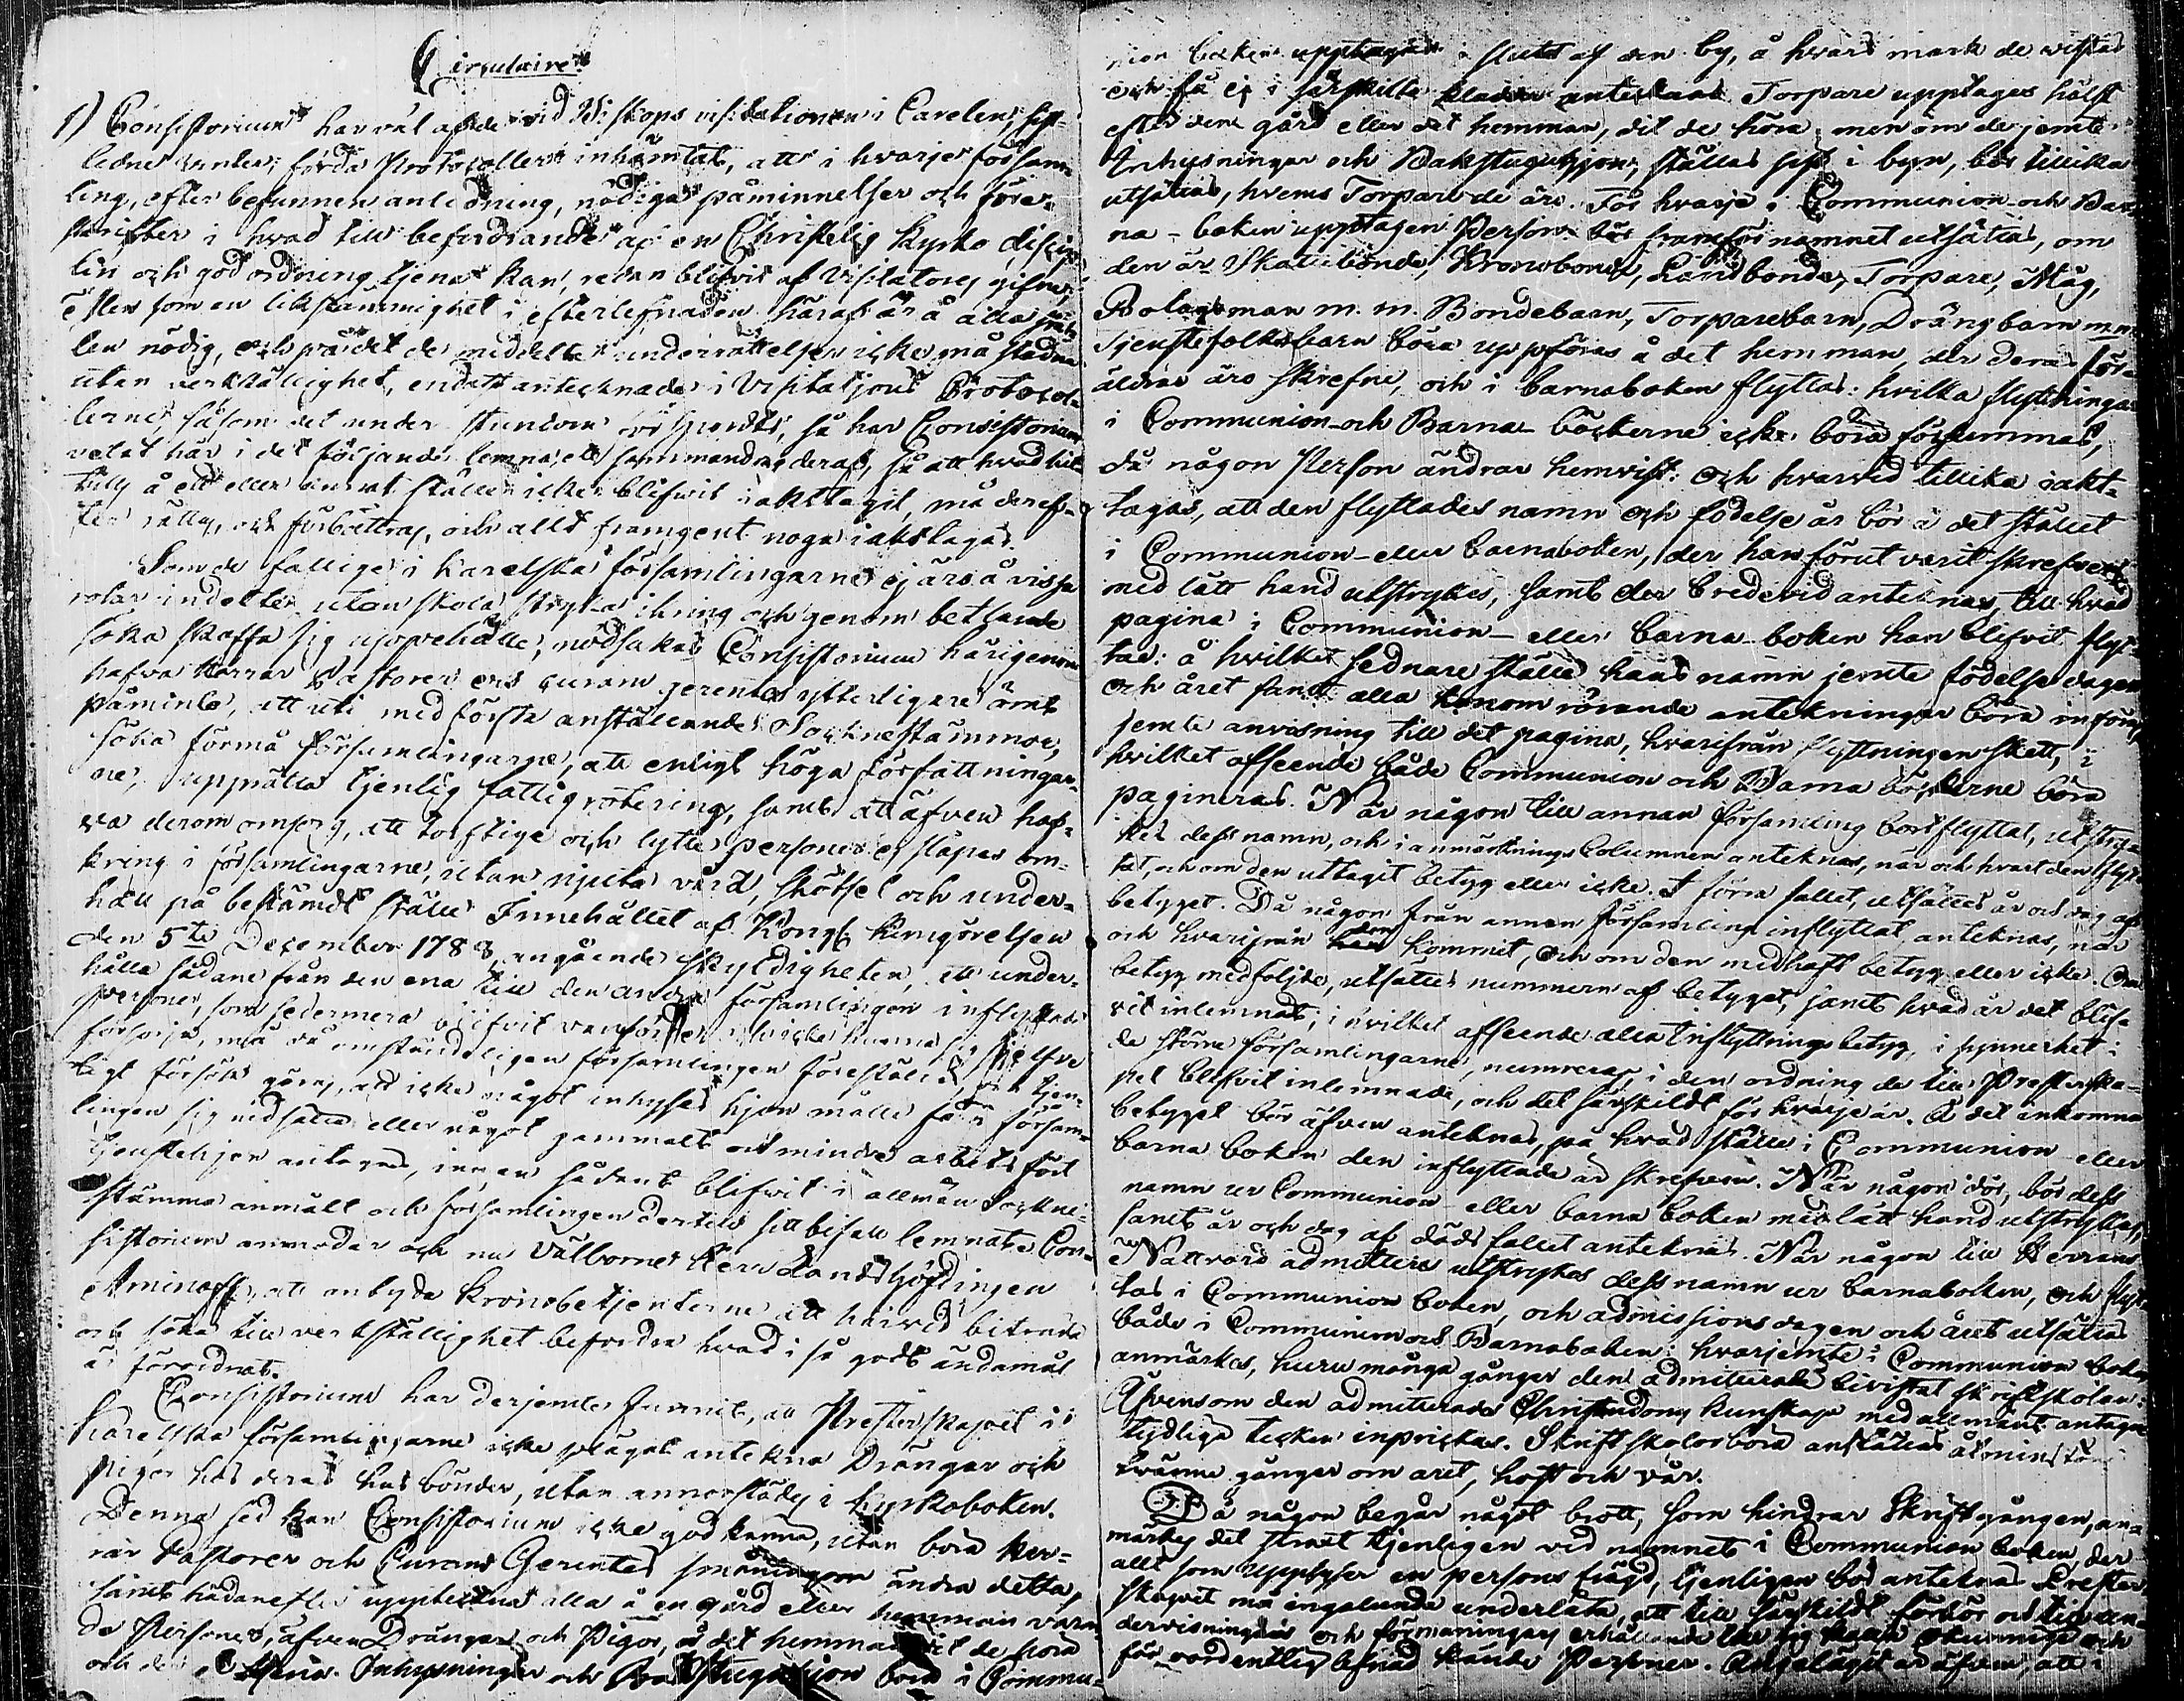 Circulaire
1) Consistorium har väl af de vid Biskops visitationen i Carelen, sist-
ledne förda Protocoller inhämtat, att i hvarje försam-
ling, efter befunnen anledning, nödiga påminnelser och före-
skrifter i hvad till befordrande af en Christelig kyrko discip-
lin och god ordning tjena kan, redan blifvit af Visitator gifne;
Men som en likstämmighet i efterlefnaden häraf är å alla stäl-
len nödig, och på det de meddelte underrättelser icke må stadna
utan verkställighet, endast antecknade i Visitations Protocol-
lerne, såsom det under stundom sig händt, så har Consistorium
velat här i det följande lemna ett sammandrag deraf, så att hvad hit
tills å ett eller annat ställe icke blifvit iakttagit, må deref-
ter rättas, och förbättras, och allt framgent noga iakttagas.
Som de fattige i Karelska församlingarne ej äro å vissa
rotar indelte, utan skola stryka ikring och genom betlande
söka skaffa sig uppehälle; nödsakas Consistorium härigenom
hafva Herrar Pastorer och curam gerentes ytterligare ömt
påminte, att uti med första anställande Sockneståmmor,
söka förmå församlingarne, att enligt höga författningar-
ne, upprätta tjenlig fattigrotering, samt att äfven haf-
va derom omsorg, att torftige och lytte personer ej släpas om-
kring i församlingarne, utan njuta vård, skötsel och under-
håll på bestämdt ställe. Innehållet af Kongl. Kungörelsen
den 5te December 1788, angående skyldigheten, att under-
hålla sådane från den ena till den andra församlingen inflyttade
personer, som sedermera blifvit vanföre, och icke kunna sig sjelfve
försörja, må då omständeligen församlingen föreställas, och tjen-
ligt försök göras, att icke något inhyses hjon måtte få i försam-
lingen sig nedsätta eller något gammalt och mindre arbetsfört
tjenstehjon antagas, innan sådant blifvit i allmän Sockne-
stämma anmält och församlingen dertill sitt bifall lemnat. Con-
sistorium anmodar ock nu Välborne Herr Landshöfdingen
Aminoff, att anbyda Kronobetjenterne att härvid biträda
och söka till verkställighet befordra hvad i så godt ändamål
är förordnat.
Consistorium har derjemte funnit, att Presterskapet i
Karelska församlingarne icke plägat antekna Drängar och
pigor hos deras husbönder, utan annorstädes i kyrkoboken.
Denna sed kan Consistorium icke godkänna, utan böra Her-
rar Pastorer och Curam Gerentes småningom ändra detta,
samt hädanefter uppteckna alla å en gård eller hemman varan-
de Personer, äfven Drängar och Pigor, å det hemman dit de höra
och der Inhysningar och Backstuguhjon böra i Commu-
nion boken upptagas i slutet af den by, å hvars mark de vistas
och få ej i särskilta blader antecknas. Torpare upptages hälst
efter den gård eller det hemman, dit de höra; men om de jemte
Inhysningar och Bakstuguhjon, ställas sist i byn, bör tillika
utsättas, hvems Torpare de äro. För hvarje i Communion- och Bar-
na-boken upptagen Person bör framför namnet utsättas, om
den är Skattebonde, Kronobonde, Landbonde, Torpare, Måg,
Bolagsman m. m. Bondebarn, Torparebarn, Drängbarn m.m.
Tjenstefolksbarn böra uppföras å det hemman, der deras för-
äldrar äro skrefne, och i barnaboken flyttas: hvilka flyttningar
i Communion- och Barna-böckerne icke böra försummas,
då någon Person ändrar hemvist: och hvarvid tillika iakt-
tagas, att den flyttades namn och födelse år bör å det stället
i Communion- eller barnaboken, der han förut varit skrefven
med lätt hand utstrykes, samt der bredevid anteknas, till hvad
pagina i Communion- eller barna-boken han blifvit flyt-
tad: å hvilket sednare ställe hans namn jemte födelse dagen
och året samt alla honom rörande antekningar böra införas,
jemte anvisning till det pagina, hvarifrån flyttningen skett, i
hvilket afseende både Communion och Barna böckerne böra
pagineras. När någon till annan församling bortflyttat, utstry-
kes dess namn, och i anmärkningsColumnen anteknas, när och hvart den flyt-
tat, och om den uttagit betyg eller icke. I förra fallet, utsättes år och dag af
betyget. Då någon från annan församling inflyttat, anteknas, när
och hvarifrån den kommit, och om den medhaft betyg eller icke. Om
betyg medföljde, utsättes nummern af betyget, samt hvad år det blif-
vit inlemnat; i hvilket afseende alla Inflyttningsbetyg, i synnerhet i
de större församlingarne, numreras, i den ordning de till Presterska-
pet blifvit inlemnade, och det särskildt för hvarje år. Å det inkomna
betyget bör äfven anteknas, på hvad ställe i Communion eller
barna boken den inflyttade är skrefven. När någon dör, bör dess
namn ur Communion- eller barna boken med lätt hand utstrykas,
samt år och dag af dödsfallet anteknas. När någon till Herrans
Nattvard admitteras utstrykes dess namn ur barnaboken, och flyt-
tas i Communion boken, och admissions dagen och året utsättas
både i Communion och Barnaboken: hvarjemte i Communion boken
anmärkes, huru många gånger den admitterade bivistat skriftskolan:
Äfvensom den admitterades Christendoms kunskap med allmänt antagne
tydlige tecken inprickas. Skriftskolor böra anställas åtminstone
tvänne gånger om året, höst och vår.
Då någon begår något brott, som hindrar Skriftgången, an-
märkes det straxt tjenligen vid namnet i Communion boken, der
allt som upplyser en persons frägd, tjenligen bör anteknas. Prester-
skapet må ingalunda underlåta, att till särskildt förhör och till un-
dervisningars och förmaningars erhållande låta sig kalla okunnige och
för vårdeslös lefnad kände Personer. Angeläget är äfven, att i